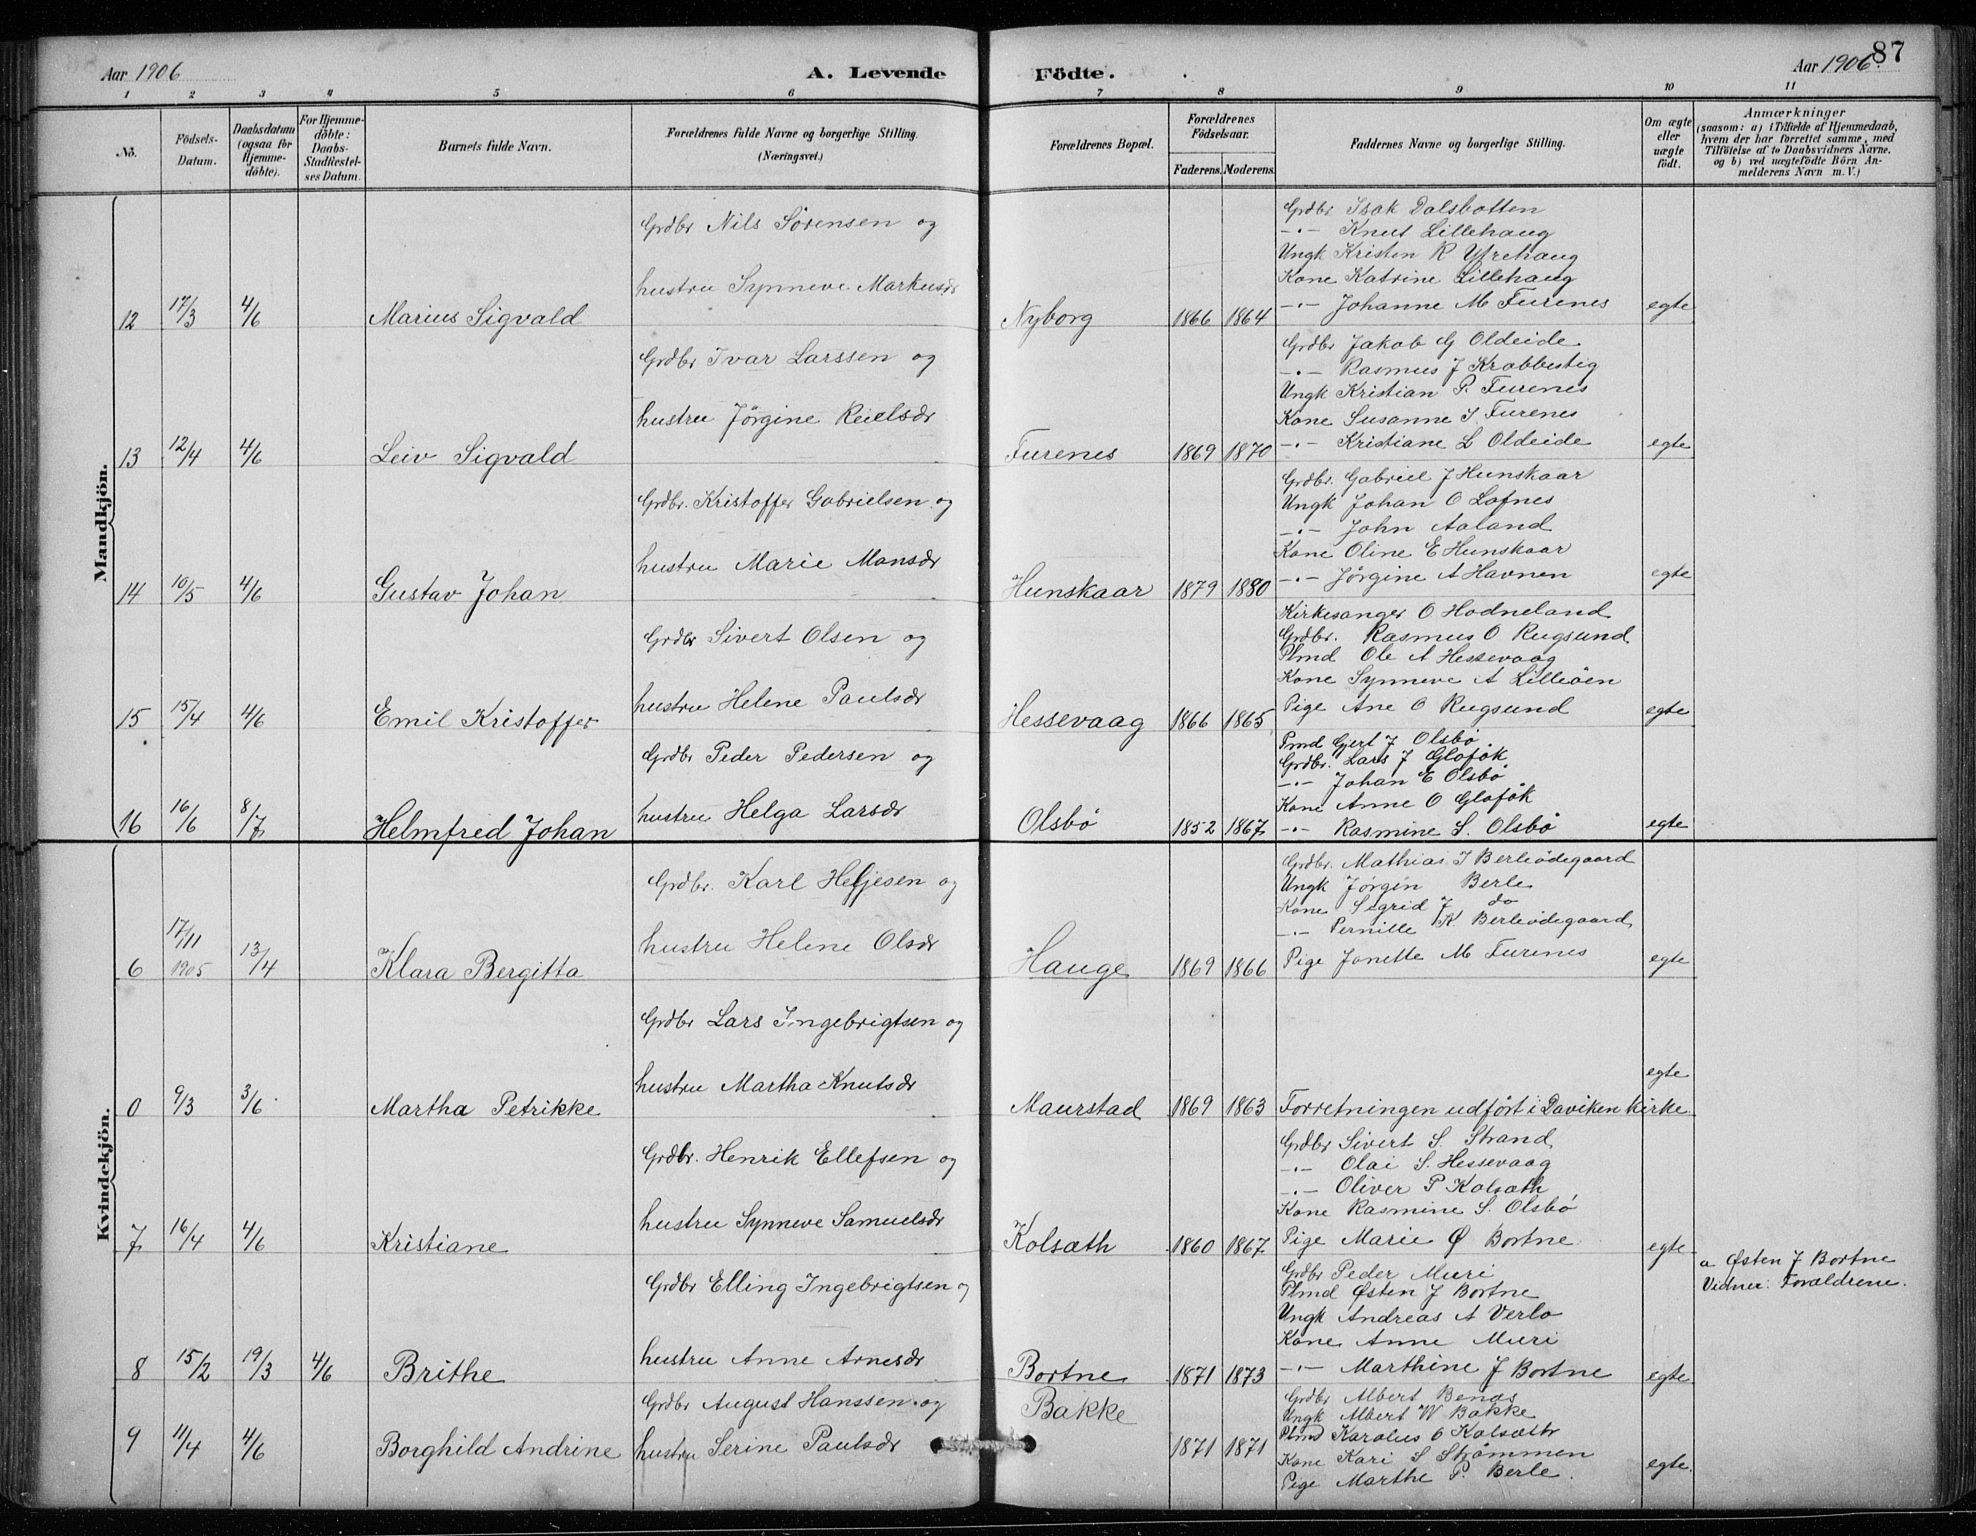 87
Aar 1906
A. Levende
Födte.
Aar 1906.
1 2 3 4 5 6 7 8 9 10 11
No.
Födsels-
Datum.
Daabsdatum
(ogsaa for
Hjemme-
döbte).
For Hjemme-
döbte:
Daabs-
Stadfæstel-
ses Datum.
Barnets fulde Navn.
Forældrenes fulde Navne og borgerlige Stilling.
(Næringsvei.)
Forældrenes Bopæl.
Forældrenes
Födselsaar.
Faderens. Moderens.
Faddernes Navne og borgerlige Stilling.
Om ægte
eller
uægte
födt.
Anmærkninger
(saasom: a) i Tilfælde af Hjemmedaab,
hvem der har forrettet samme, med
Tilföielse af to Daabsvidners Navne.
og b) ved uægtefödte Börn An-
melderens Navn m. V.)
Mandkjön.
12 17/3 4/6 Marius Sigvald
Grdbr Nils Sörensen og
hustru Synneve Markusdr
Nyborg 1866 1864
Grdbr Isak Dalsbotten
-"- Knut Lillehaug
Ungk Kristen R Ytrehaug
Kone Katrine Lillehaug
-"- Johanne M Furenes egte
13 12/4 4/6 Leiv Sigvald
Grdbr Ivar Larssen og
hustru Jørgine Reielsdr
Furenes 1869 1870
Grdbr Jakob G Oldeide
-"- Rasmus J Krabbestig
Ungk Kristian P. Furenes
Kone Susanne S Furenes
-"- Kristiane L Oldeide egte
14 10/5 4/6 Gustav Johan
Grdbr. Kristoffer Gabrielsen og
hustru Marie Monsdr
Hunskaar 1879 1880
Grdbr. Gabriel J Hunskaar
Ungk Johan O Lofnes
-"- John Aaland
Kone Oline E Hunskaar
-"- Jörgine A Havnen egte
15 15/4 4/6 Emil Kristoffer
Grdbr Sivert Olsen og
hustru Helene Paulsdr
Hessevaag 1866 1865
Kirkesanger O Hodneland
Grdbr. Rasmus O Rugsund
Plmd Ole A Hessevaag
Kone Synneve A Lilleöen
Pige Ane O Rugsund egte
16 16/6 8/7 Helmfred Johan
Grdbr Peder Pedersen og
hustru Helga Larsdr
Olsbö 1852 1867
Pmd Gjert J Olsbö
Grdbr. Lars J Glofök
-"- Johan E Olsbö
Kone Anne O Glofök
-"- Rasmine S. Olsbö egte
Kvindekjön.
6 17/11 1905 13/4 Klara Bergitta
Grdbr. Karl Heljesen og
hustru Helene Olsdr
Hauge 1869 1866
Grdbr. Mathias J Berleödegaard
Ungk Jörgin Berle
Kone Sigrid J do
-"- Pernille K Berleödegaard
Pige Jonette M Furenes egte
0 9/3 3/6 Martha Petrikke
Grdbr Lars Ingebrigtsen og
hustru Martha Knutsdr
Maurstad 1869 1863
Forretningen udfört i Daviken Kirke egte
7 16/4 4/6 Kristiane
Grdbr. Henrik Ellefsen og
hustru Synneve Samuelsdr
Kolsæth 1860 1867
Grdbr Sivert S. Strand
-"- Olai S. Hessevaag
-"- Oliver P Kolsæth
Kone Rasmine S. Olsbö
Pige Marie Ø Bortne egte
8 15/2 19/3 4/6 Brithe
Grdbr Elling Ingebrigtsen og
hustru Anne Arnesdr
Bortne 1871 1873
Grdbr Peder Muri
Plmd Østen J Bortne
Ungk Andreas A Verlo
Kone Anne Muri
-"- Marthine J Bortne egte
a Østen J Bortne
Vidner: Forældrene.
9 11/4 4/6 Borghild Andrine
Grdbr August Hanssen og
hustru Serine Paulsdr
Bakke 1871 1871
Grdbr Albert Benas
Ungk Albert W Bakke
Plmd Karolus O Kolsæth
Kone Kari S Strømmen
Pige Marthe P. Berle egte.